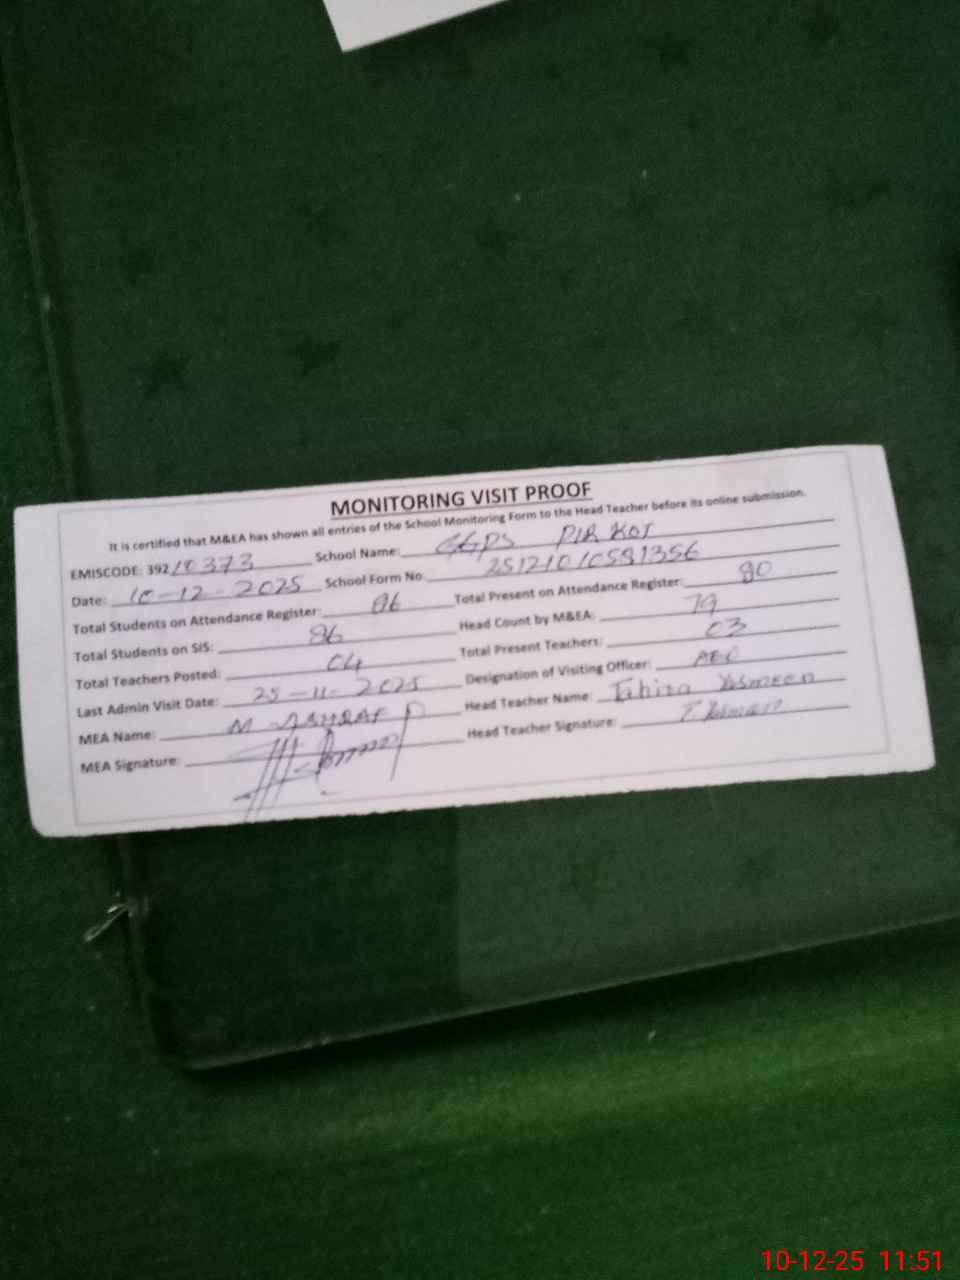 MONITORING VISIT PROOF
It is certified that M&EA has shown all entries of the School Monitoring Form to the Head Teacher before its online submission.
EMISCODE: 39210373 School Name: GGPS PIR KOT
Date: 10-12-2025 School Form No: 25121010581356
Total Students on Attendance Register: 86 Total Present on Attendance Register: 80
Total Students on SIS: 86 Head Count by M&EA: 79
Total Teachers Posted: 04 Total Present Teachers: 03
Last Admin Visit Date: 25-11-2025 Designation of Visiting Officer: AEO
MEA Name: M ASHRAF Head Teacher Name: Tahira Yasmeen
MEA Signature: Head Teacher Signature: T. Yasmeen
10-12-25 11:51